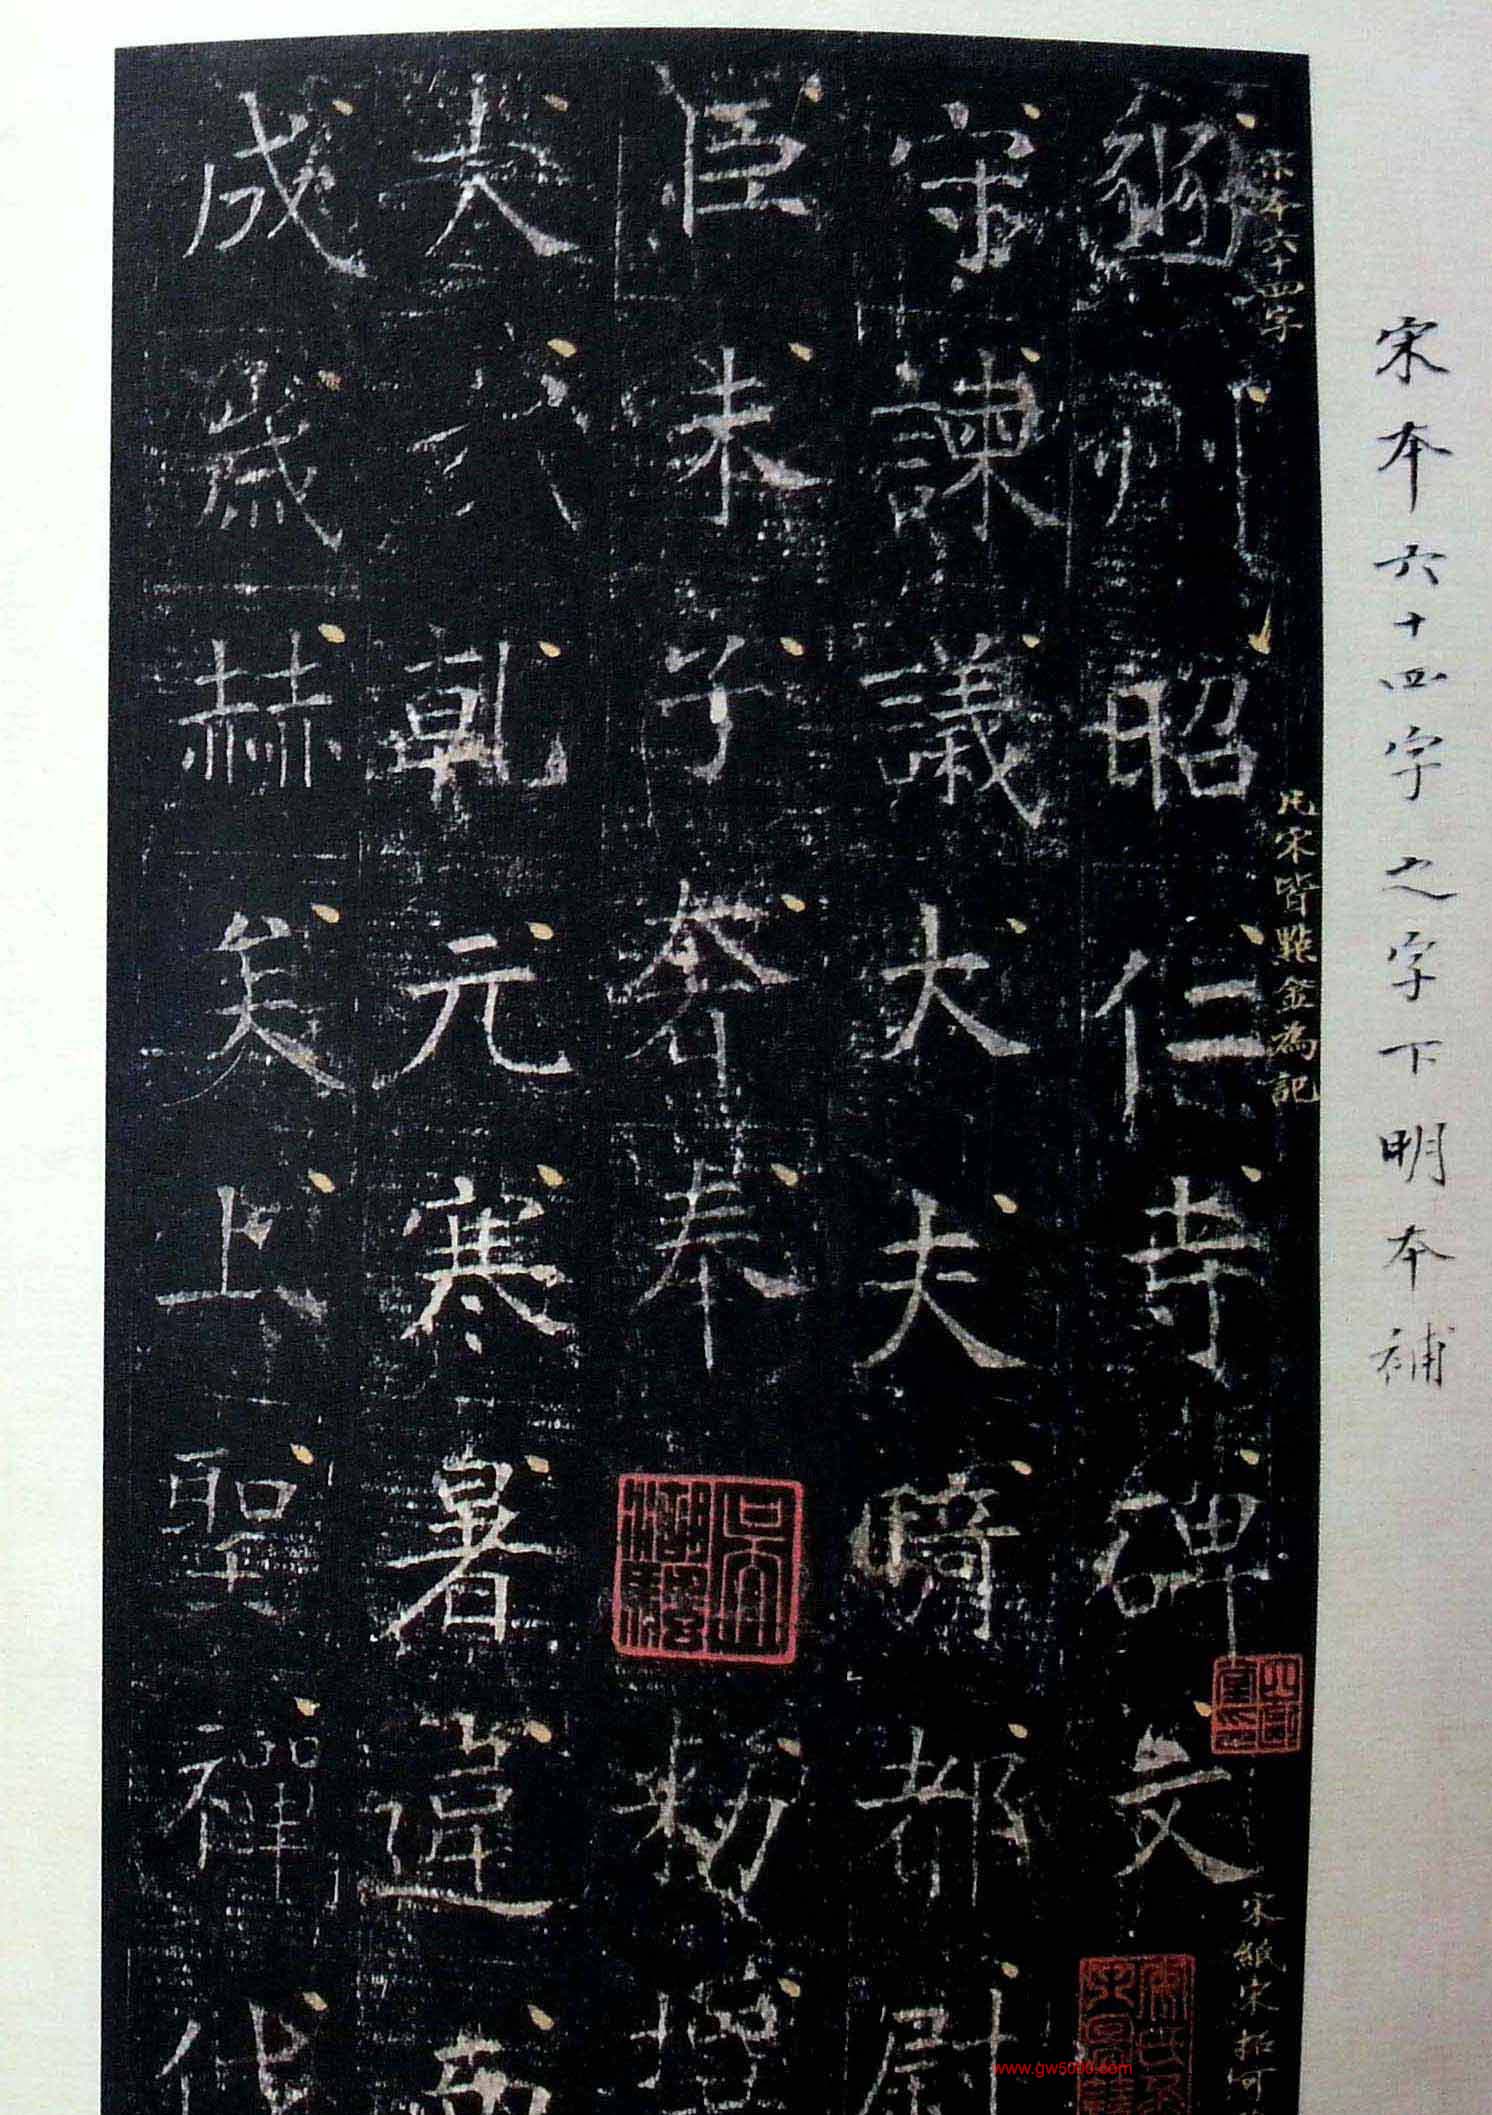 宋本六十四字之字下明本補
宋本六十四字
凡宋皆點金為記
豳州昭仁寺碑文
宋紙宋拓可
守諫議大夫騎都尉
臣朱子奢奉
勑撰
夫六氣元寒暑違而
成歲赫矣上聖禪代
www.gw5000.com